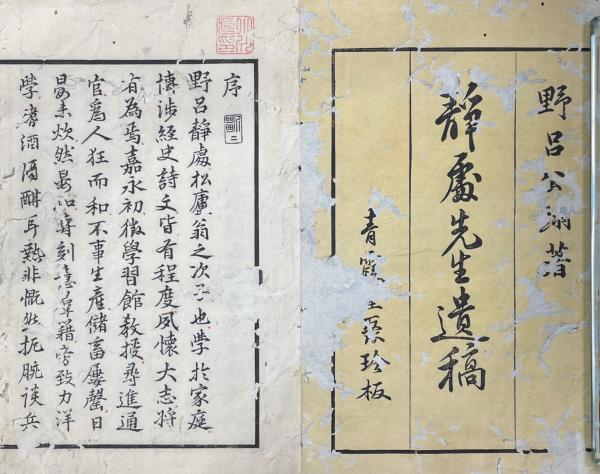 野呂公著
靜處先生遺稿
青霞珍板
序
野呂靜處松廬翁之次子也學於家庭
博涉經史詩文皆有程度夙懷大志將
有為焉嘉永初徵學習館教授尋進通
官爲人狂而和不事生產儲畜屢罄日
晏未炊然晏如刻意羣籍旁致力洋
學嗜酒酒酣耳熱慨然扼腕談兵